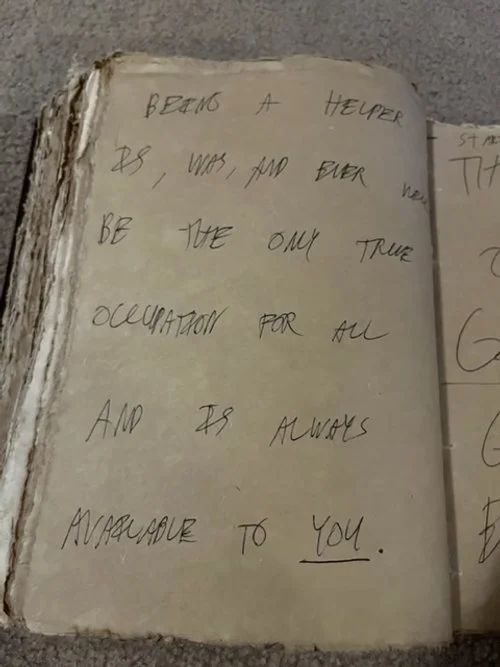 BEING A HELPER
IS, WAS, AND EVER WILL
BE THE ONLY TRUE
OCCUPATION FOR ALL
AND IS ALWAYS
AVAILABLE TO YOU.